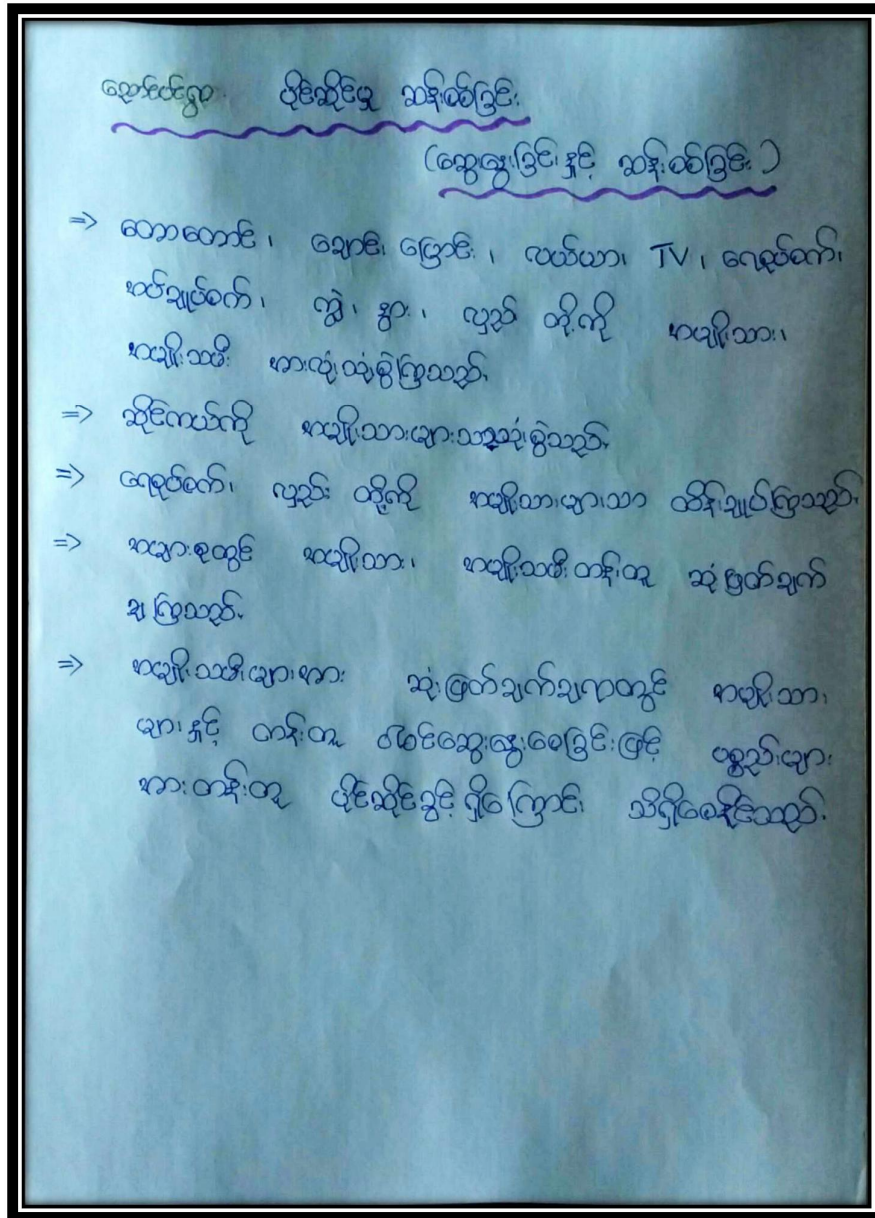 ညောင်ပင်ရွာ ပိုင်ဆိုင်မှု ဆန်းစစ်ခြင်း
(ဆွေးနွေးခြင်းနှင့် ဆန်းစစ်ခြင်း)
⇒ တောတောင်၊ ချောင်း မြောင်း၊ လယ်ယာ၊ TV၊ ရေစုပ်စက်၊
အပ်ချုပ်စက်၊ ကျွဲ၊ နွား၊ လှည်း တို့ကို အမျိုးသား၊
အမျိုးသမီး အားလုံးသုံးစွဲကြသည်။
⇒ ဆိုင်ကယ်ကို အမျိုးသားများသာသုံးစွဲသည်။
⇒ ရေစုပ်စက်၊ လှည်း တို့ကို အမျိုးသားများသာ ထိန်းချုပ်ကြသည်။
⇒ အများစုတွင် အမျိုးသား၊ အမျိုးသမီးတန်းတူ ဆုံးဖြတ်ချက်
ချကြသည်။
⇒ အမျိုးသမီးများအား ဆုံးဖြတ်ချက်ချရာတွင် အမျိုးသား
များနှင့် တန်းတူ ပါဝင်ဆွေးနွေးစေခြင်းဖြင့် ပစ္စည်းများ
အားတန်းတူ ပိုင်ဆိုင်ခွင့်ရှိကြောင်း သိရှိစေနိုင်သည်။